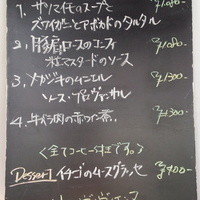 1. サツマイモのスープと ¥1080-
ズワイガニとアボカドのタルタル
2. 豚肩ロースのコンフィ ¥1080-
粒マスタードのソース
3. メカジキのムニエル ¥1300-
ソース・ブール
4. 牛ホホ肉の赤ワイン煮 ¥1300-
<全てコーヒー付きです。>
Dessert イチゴのムースグラッセ ¥400-